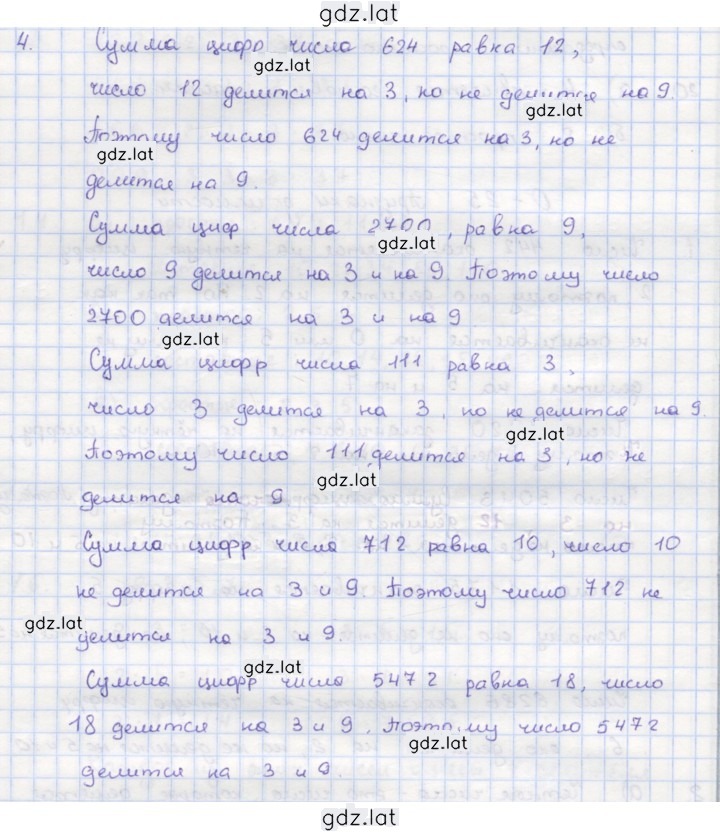 gdz.lat
4. Сумма цифр числа 624 равна 12,
gdz.lat
число 12 делится на 3, но не делится на 9.
gdz.lat
Поэтому число 624 делится на 3, но не
gdz.lat
делится на 9.
Сумма цифр числа 2700, равна 9,
gdz.lat
число 9 делится на 3 и на 9. Поэтому число
2700 делится на 3 и на 9
gdz.lat
Сумма цифр числа 111 равна 3,
число 3 делится на 3, но не делится на 9.
gdz.lat
Поэтому число 111 делится на 3, но не
gdz.lat
делится на 9
Сумма цифр числа 712 равна 10, число 10
не делится на 3 и 9. Поэтому число 712 не
gdz.lat
делится на 3 и 9.
gdz.lat
Сумма цифр числа 5472 равна 18, число
18 делится на 3 и 9. Поэтому число 5472
gdz.lat
делится на 3 и 9.
gdz.lat